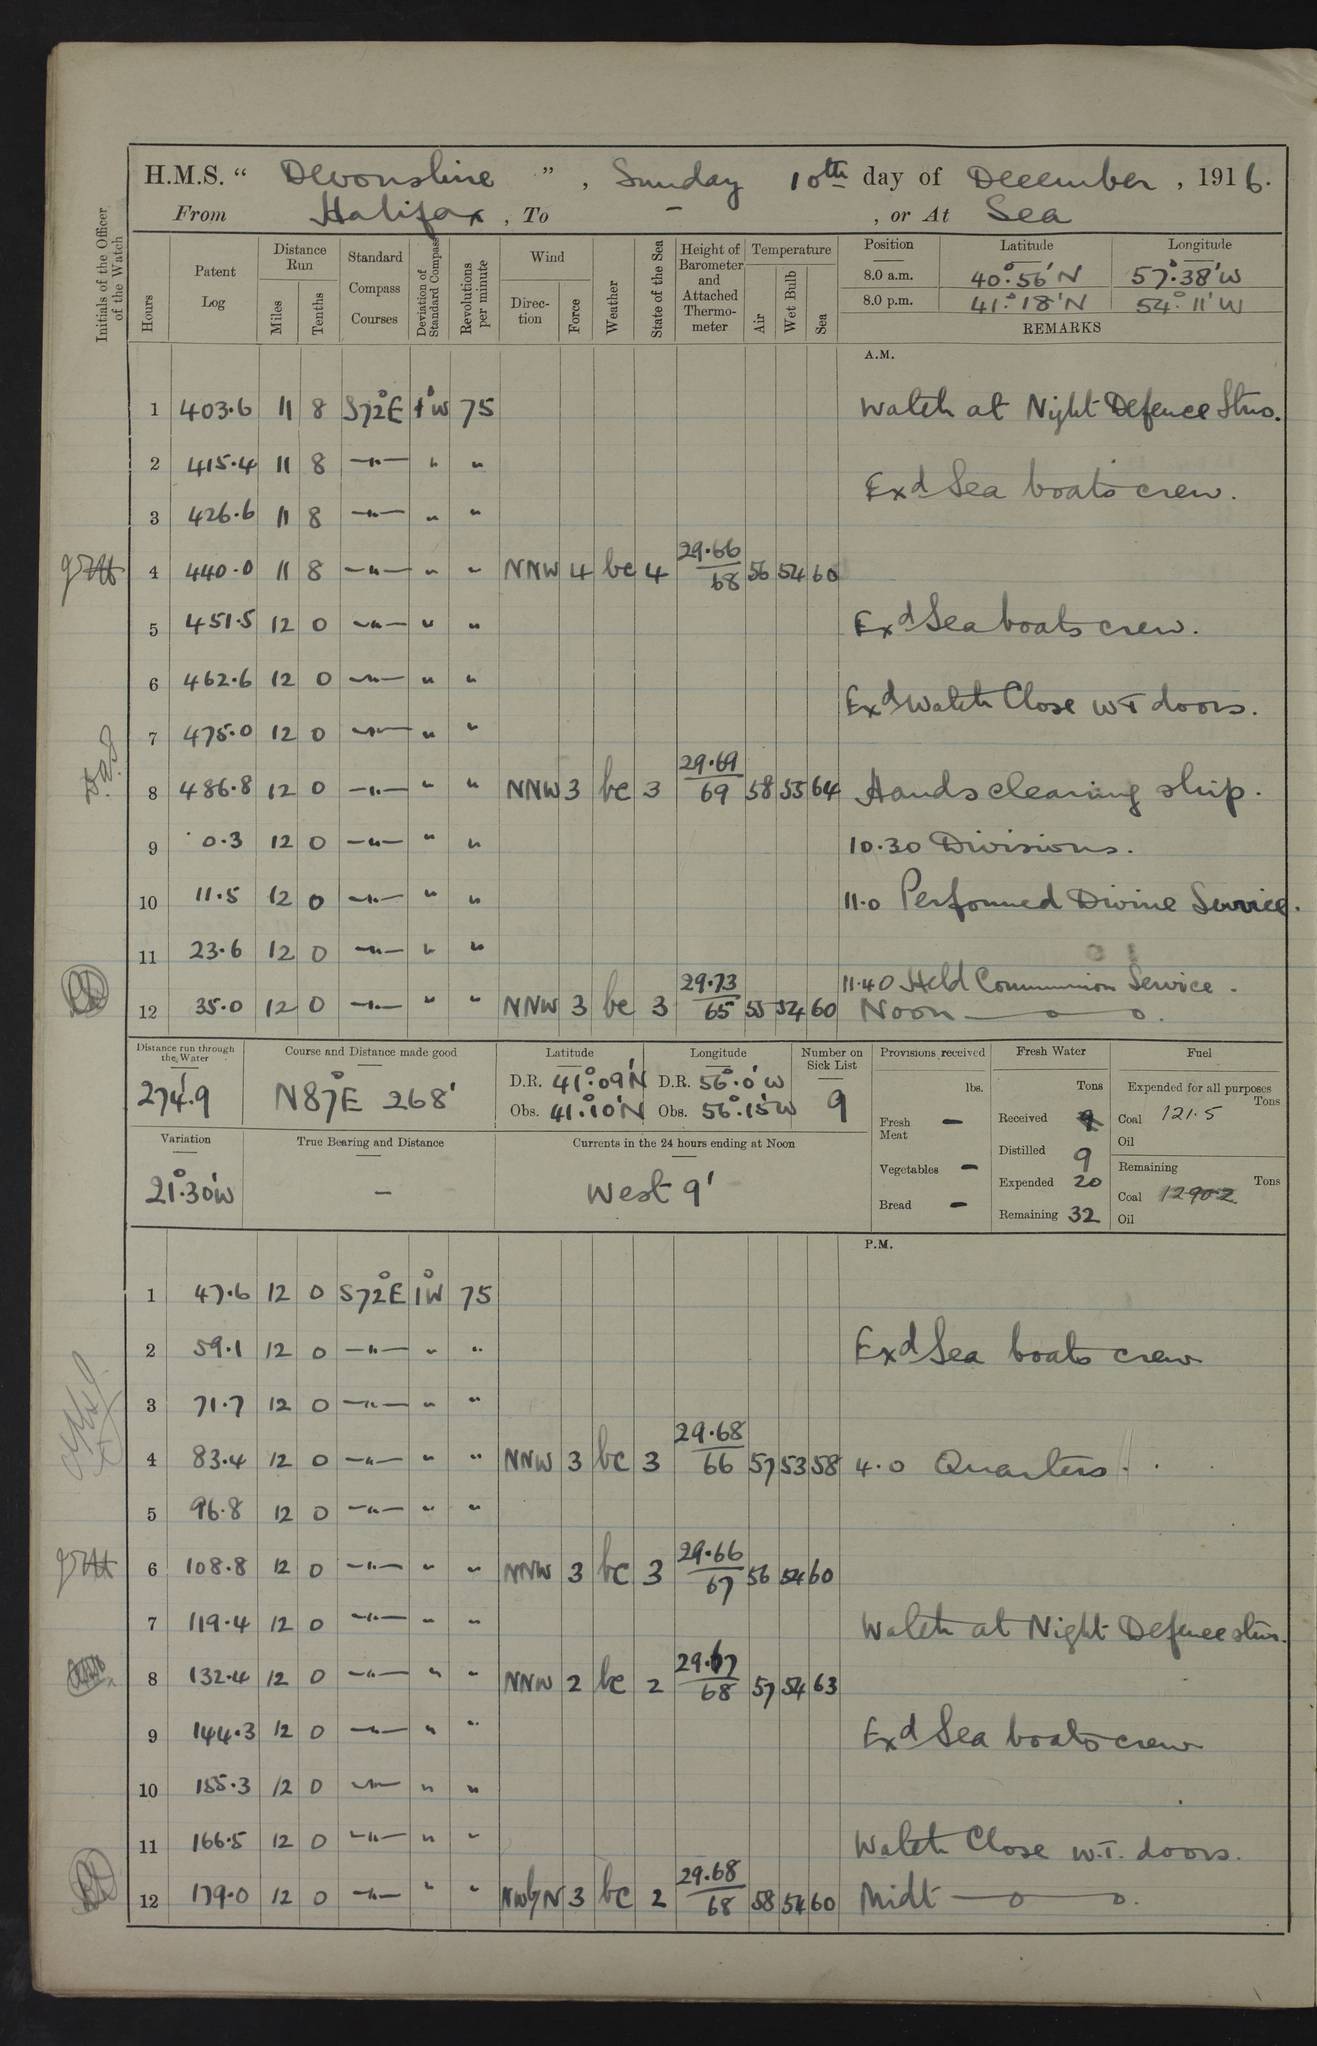 H.M.S. “ Devonshire ” , Sunday 10th day of December , 1916.
From Halifax , To - , or At Sea
Initials of the Officer of the Watch
Hours
Patent Log
Distance Run
Miles
Tenths
Standard Compass Courses
Deviation of Standard Compass
Revolutions per minute
Wind
Direc-tion
Force
Weather
State of the Sea
Height of Barometer and Attached Thermo-meter
Temperature
Air
Wet Bulb
Sea
Position Latitude Longitude
8.0 a.m. 40°.56'N 57°.38'W
8.0 p.m. 41°.18'N 54°.11'W
REMARKS
A.M.
1 403.6 11 8 S72°E 1°W 75 Watch at Night Defence Stns.
2 415.4 11 8 —"— " "
Exd Sea boats crew.
3 426.6 11 8 —"— " "
4 440.0 11 8 —"— " " NNW 4 bc 4 29.66/68 56 54 60
5 451.5 12 0 —"— " " Exd Sea boats crew.
6 462.6 12 0 —"— " "
Exd Watch Close WT doors.
7 475.0 12 0 —"— " "
8 486.8 12 0 —"— " " NNW 3 bc 3 29.69/69 58 55 64 Hands cleaning ship.
9 0.3 12 0 —"— " " 10.30 Divisions.
10 11.5 12 0 —"— " " 11.0 Performed Divine Service.
11 23.6 12 0 —"— " "
11.40 Held Communion Service.
12 35.0 12 0 —"— " " NNW 3 bc 3 29.73/65 55 54 60 Noon —o—o.
Distance run through the Water
274.9'
Course and Distance made good
N87°E 268'
Latitude
D.R. 41°.09'N
Obs. 41°.10'N
Longitude
D.R. 56°.0'W
Obs. 56°.15'W
Number on Sick List
9
Provisions received
lbs.
Fresh Meat —
Vegetables —
Bread —
Fresh Water
Tons
Received
Distilled 9
Expended 20
Remaining 32
Fuel
Expended for all purposes
Tons
Coal 121.5
Oil
Remaining
Tons
Coal 1290.2
Oil
Variation
21°.30'W
True Bearing and Distance
—
Currents in the 24 hours ending at Noon
West 9'
P.M.
1 47.6 12 0 S72°E 1°W 75
2 59.1 12 0 —"— " " Exd Sea boats crew
3 71.7 12 0 —"— " "
4 83.4 12 0 —"— " " NNW 3 bc 3 29.68/66 57 53 58 4.0 Quarters.
5 96.8 12 0 —"— " "
6 108.8 12 0 —"— " " NNW 3 bc 3 29.66/67 56 54 60
7 119.4 12 0 —"— " " Watch at Night Defence Stns.
8 132.4 12 0 —"— " " NNW 2 bc 2 29.67/68 57 54 63
9 144.3 12 0 —"— " " Exd Sea boats crew
10 155.3 12 0 —"— " "
11 166.5 12 0 —"— " " Watch Close W.T. doors.
12 179.0 12 0 —"— " " NWbyN 3 bc 2 29.68/68 58 54 60 Midt —o—o.